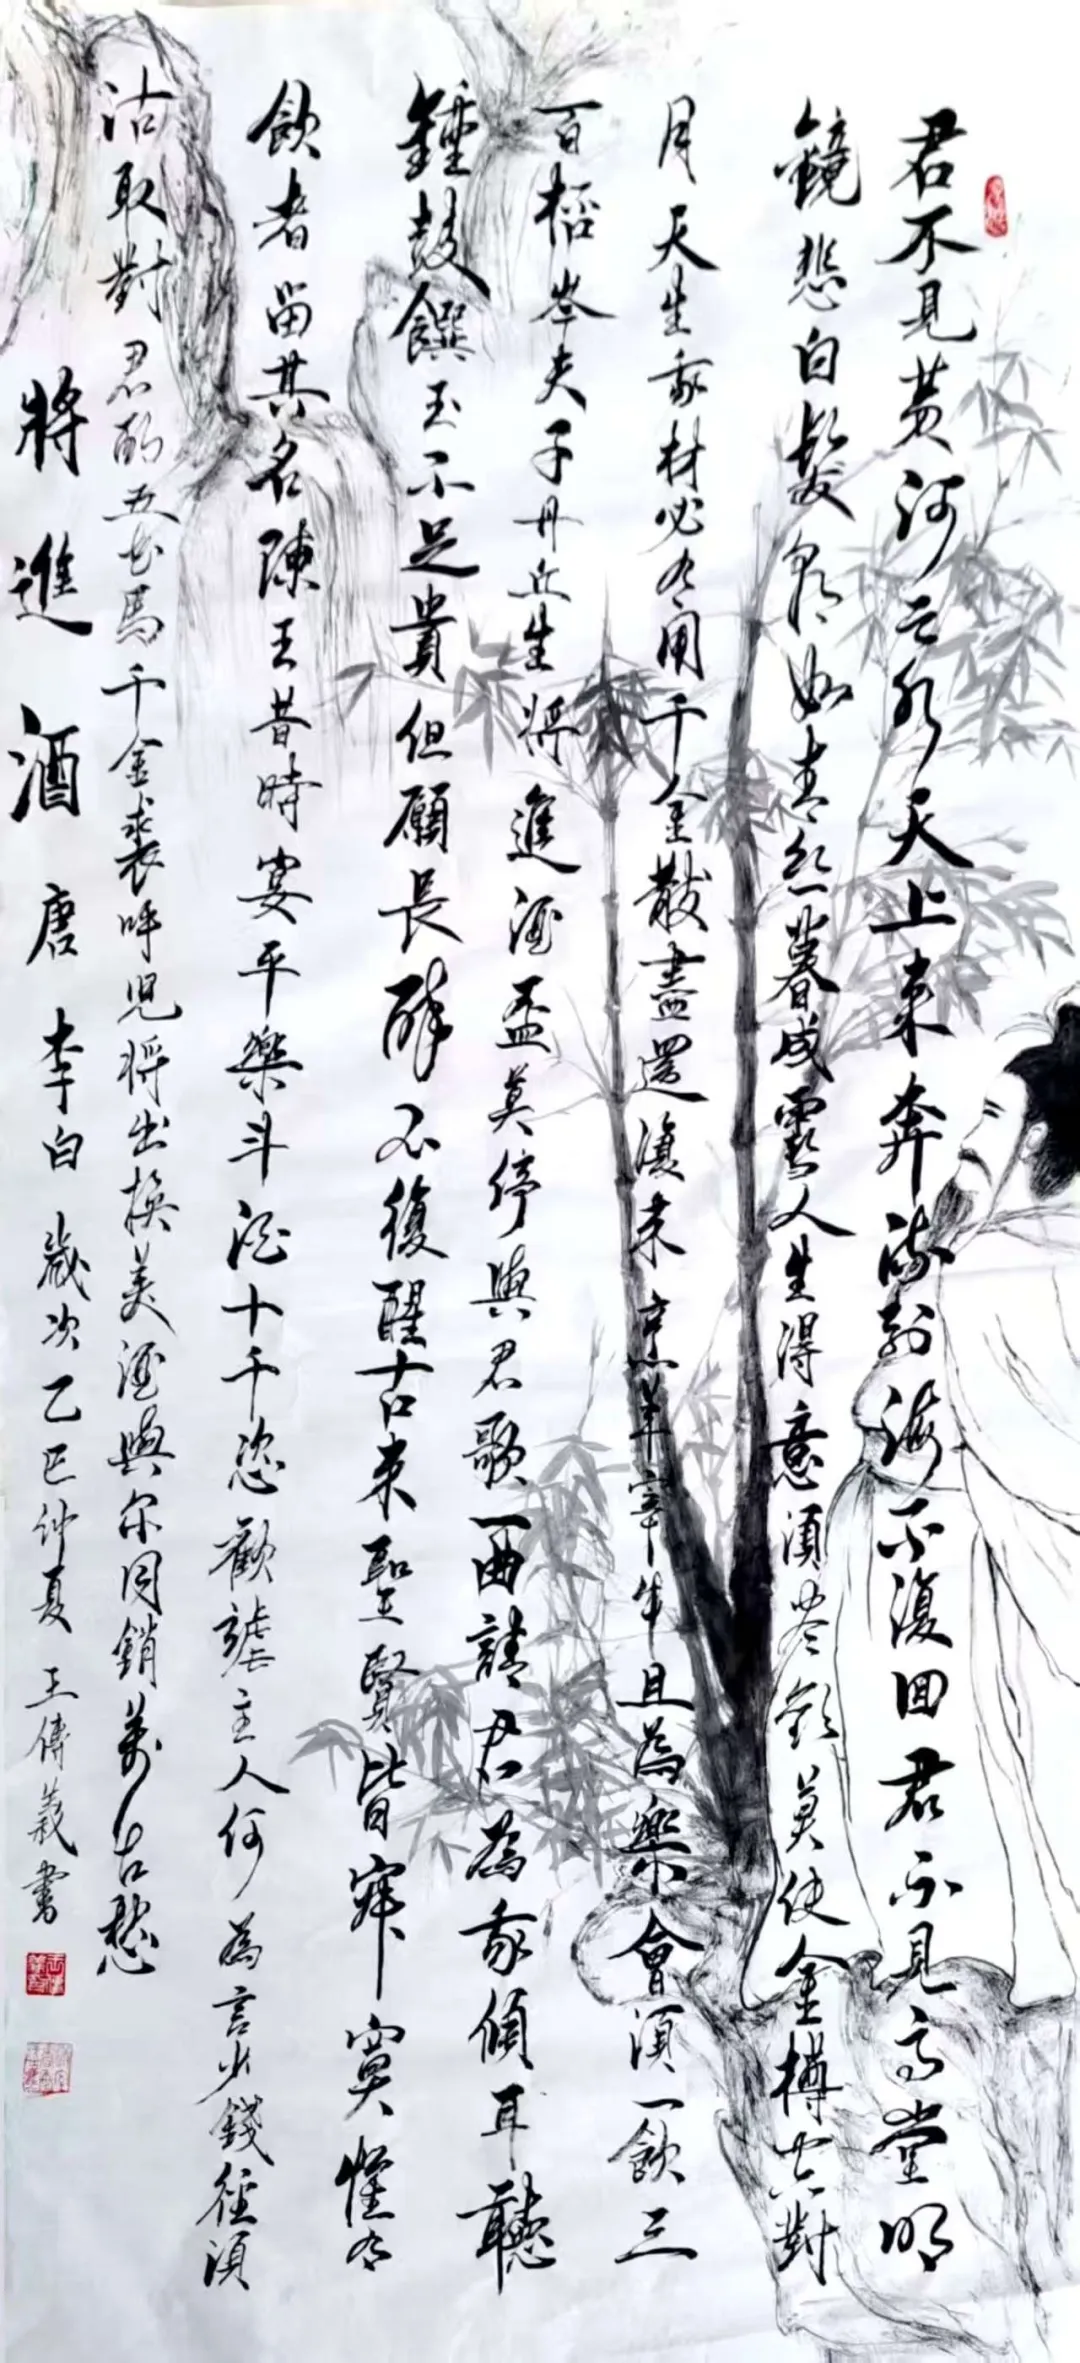 君不見黄河之水天上来奔流到海不復回君不見高堂明
鏡悲白髮朝如青丝暮成雪人生得意須尽欢莫使金樽空對
月天生我材必有用千金散盡還復来烹羊宰牛且為樂會須一飲三
百桮岑夫子丹丘生将進酒盃莫停與君歌一曲請君為我傾耳聽
鍾鼓饌玉不足貴但願長醉不復醒古来聖賢皆寂寞惟有
飲者留其名陳王昔時宴平樂斗酒十千恣歡謔主人何為言少錢径須
沽取對君酌五花馬千金裘呼児将出換美酒與尔同銷萬古愁
將進酒 唐 李白 歲次乙巳仲夏 王傳義書